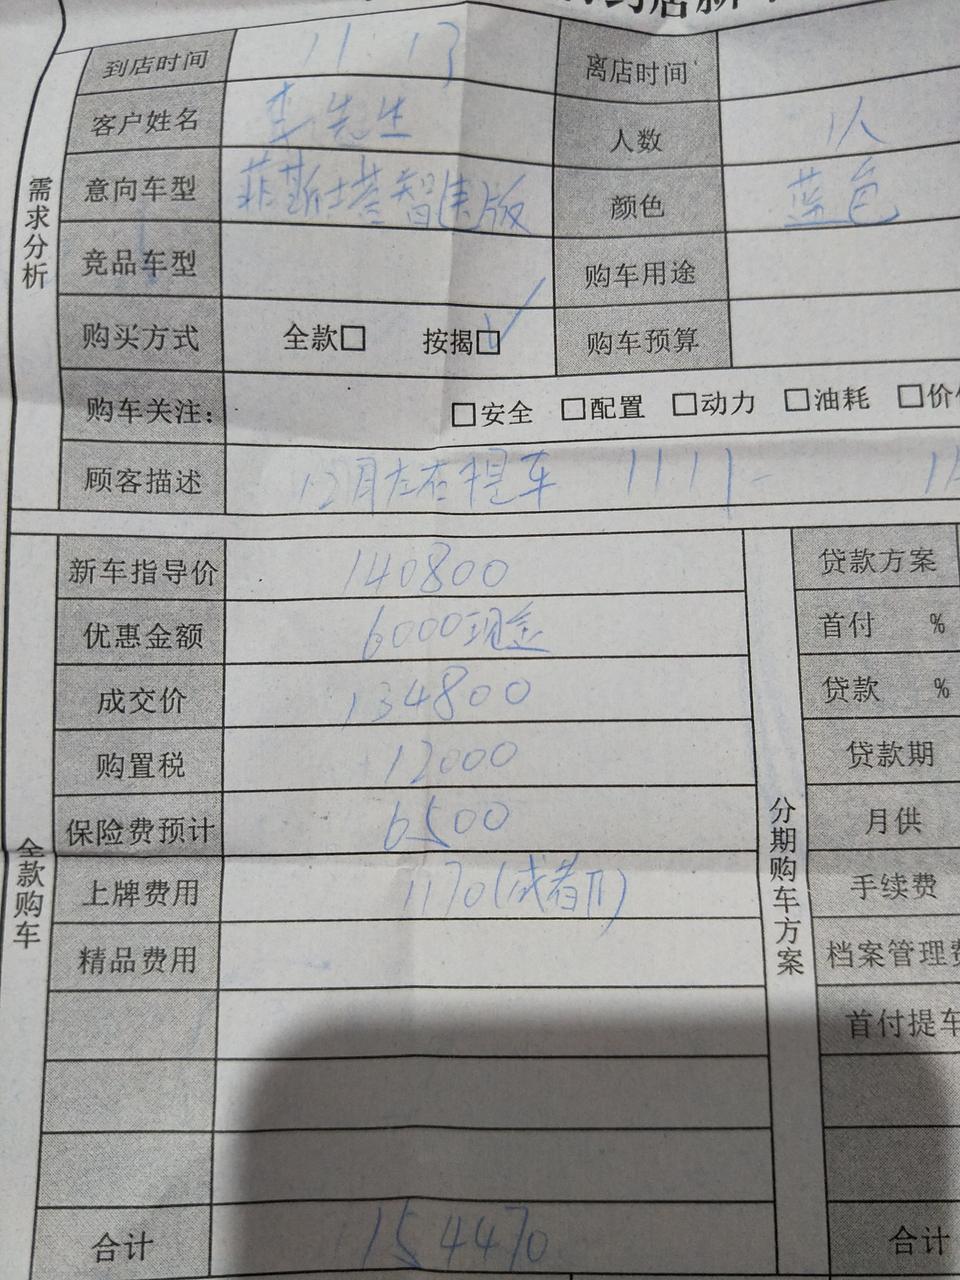 到店时间 11.13 离店时间
客户姓名 李先生 人数 1人
意向车型 菲斯塔智速版 颜色 蓝色
竞品车型 购车用途
购买方式 全款□ 按揭□✓ 购车预算
购车关注： □安全 □配置 □动力 □油耗 □价
顾客描述 12月左右提车 11.11-
需求分析
新车指导价 140800 贷款方案
优惠金额 6000现金 首付 %
成交价 134800 贷款 %
购置税 12000 贷款期
保险费预计 6500 月供
上牌费用 1170 手续费
精品费用 档案管理费
首付提车
合计 154470 合计
全款购车
分期购车方案